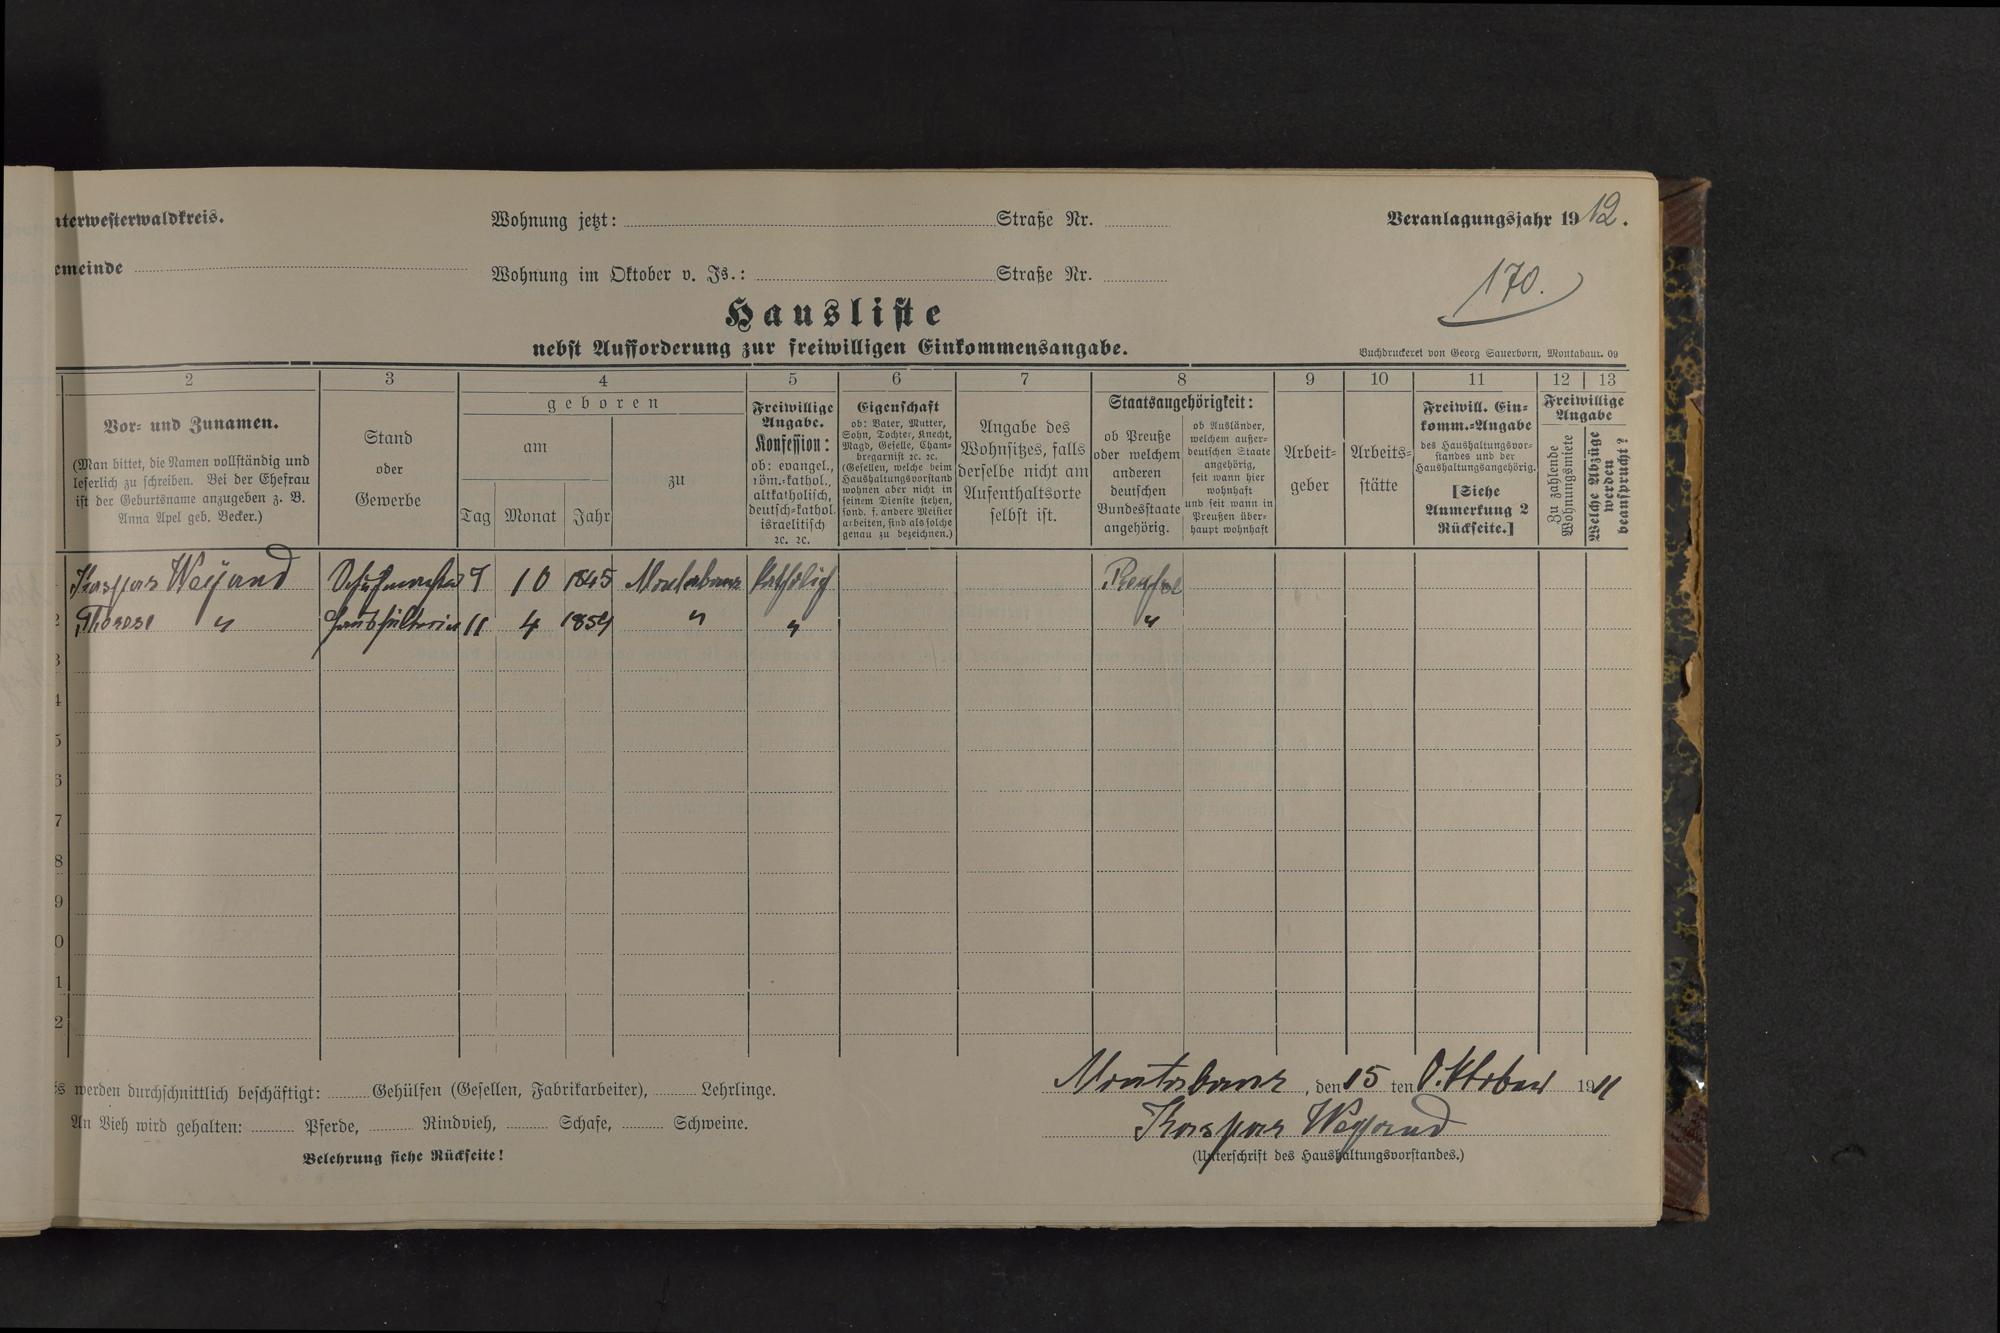 nterwesterwaldkreis.
Wohnung jetzt: Straße Nr.
Veranlagungsjahr 1912.
emeinde
Wohnung im Oktober v. Js.: Straße Nr.
170.
Hausliste
nebst Aufforderung zur freiwilligen Einkommensangabe.
Buchdruckerei von Georg Sauerborn, Montabaur. 09
2 3 4 5 6 7 8 9 10 11 12 13
Vor- und Zunamen.
(Man bittet, die Namen vollständig und
leserlich zu schreiben. Bei der Ehefrau
ist der Geburtsname anzugeben z. B.
Anna Apel geb. Becker.)
Stand
oder
Gewerbe
geboren
am
Tag Monat Jahr
zu
Freiwillige
Angabe.
Konfession:
ob: evangel.,
röm.-kathol.,
altkatholisch,
deutsch-kathol.
israelitisch
ꝛc. ꝛc.
Eigenschaft
ob: Vater, Mutter,
Sohn, Tochter, Knecht,
Magd, Geselle, Cham-
bregarnist ꝛc. ꝛc.
(Gesellen, welche beim
Haushaltungsvorstand
wohnen aber nicht in
seinem Dienste stehen,
sond. f. andere Meister
arbeiten, sind als solche
genau zu bezeichnen.)
Angabe des
Wohnsitzes, falls
derselbe nicht am
Aufenthaltsorte
selbst ist.
Staatsangehörigkeit:
ob Preuße
oder welchem
anderen
deutschen
Bundesstaate
angehörig.
ob Ausländer,
welchem außer-
deutschen Staate
angehörig,
seit wann hier
wohnhaft
und seit wann in
Preußen über-
haupt wohnhaft
Arbeit-
geber
Arbeits-
stätte
Freiwill. Ein-
komm.-Angabe
des Haushaltungsvor-
standes und der
Haushaltungsangehörig.
[Siehe
Anmerkung 2
Rückseite.]
Freiwillige
Angabe
Zu zahlende
Wohnungsmiete
Welche Abzüge
werden
beansprucht?
Kaspar Weÿand Schuhmacher 7 10 1845 Montabaur katholich Preuße
2 Therese " Haushälterin 11 4 1854 " " "
3
4
5
6
7
8
9
0
1
2
s werden durchschnittlich beschäftigt: Gehülfen (Gesellen, Fabrikarbeiter), Lehrlinge.
An Vieh wird gehalten: Pferde, Rindvieh, Schafe, Schweine.
Belehrung siehe Rückseite!
Montabaur, den 15 ten Oktober 1911
Kaspar Weÿand
(Unterschrift des Haushaltungsvorstandes.)